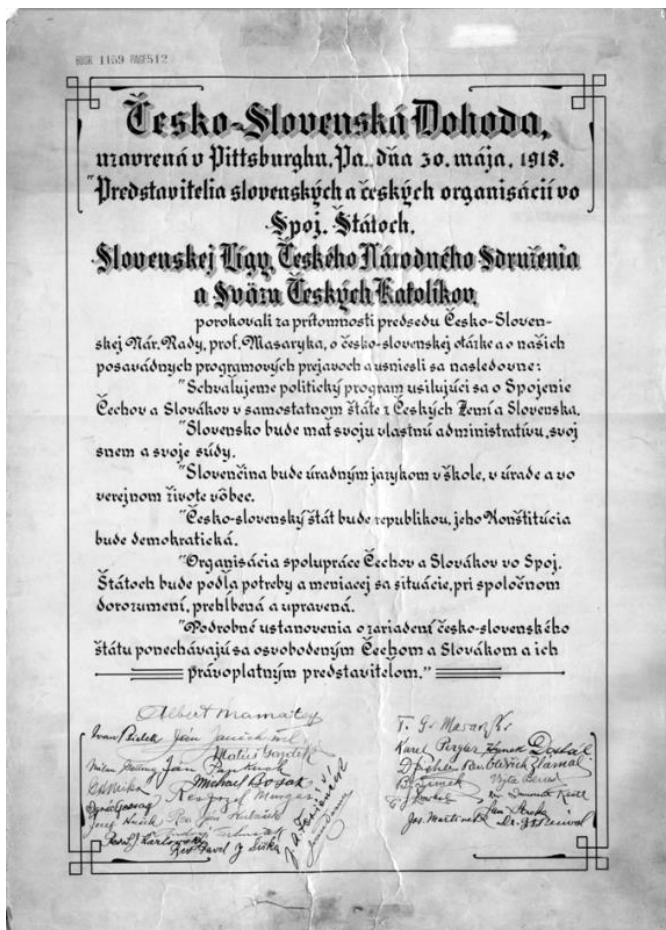 BOOK 1159 PAGE512
Česko-Slovenská Dohoda,
uzavrená v Pittsburghu, Pa. dňa 30. mája, 1918.
"Predstavitelia slovenských a českých organisácií vo
Spoj. Štátoch,
Slovenskej Ligy, Českého Národného Sdruženia
a Sväzu Českých Katolíkov,
porokovali za prítomnosti predsedu Česko-Sloven-
skej Nár. Rady, prof. Masaryka, o česko-slovenskej otázke a o našich
posavádnych programových prejavoch a usniesli sa nasledovne:
"Schvaľujeme politický program usilujúci sa o Spojenie
Čechov a Slovákov v samostatnom štáte z Českých Zemí a Slovenska.
"Slovensko bude mať svoju vlastnú administratívu, svoj
snem a svoje súdy.
"Slovenčina bude úradným jazykom v škole, v úrade a vo
verejnom živote vôbec.
"Česko-slovenský štát bude republikou, jeho Konštitúcia
bude demokratická.
"Organisácia spolupráce Čechov a Slovákov vo Spoj.
Štátoch bude podľa potreby a meniacej sa situácie, pri spoločnom
dorozumení, prehĺbená a upravená.
"Podrobné ustanovenia o zariadení česko-slovenského
štátu ponechávajú sa osvobodeným Čechom a Slovákom a ich
právoplatným predstaviteľom."
Albert Mamatey
T. G. Masaryk
Ivan Bielek Ján Janček
Karel Pergler Hynek Dostál
Matúš Gazdík
Milan Getting Ján Pankuch
Oldřich Zlámal
Michael Bosak
B. Šimek Vojta Beneš
Rev. Jozef Murgaš
Jozef Hušek Rev. Ján
Jos. Martinek
Rev. Pavel J. Šiška